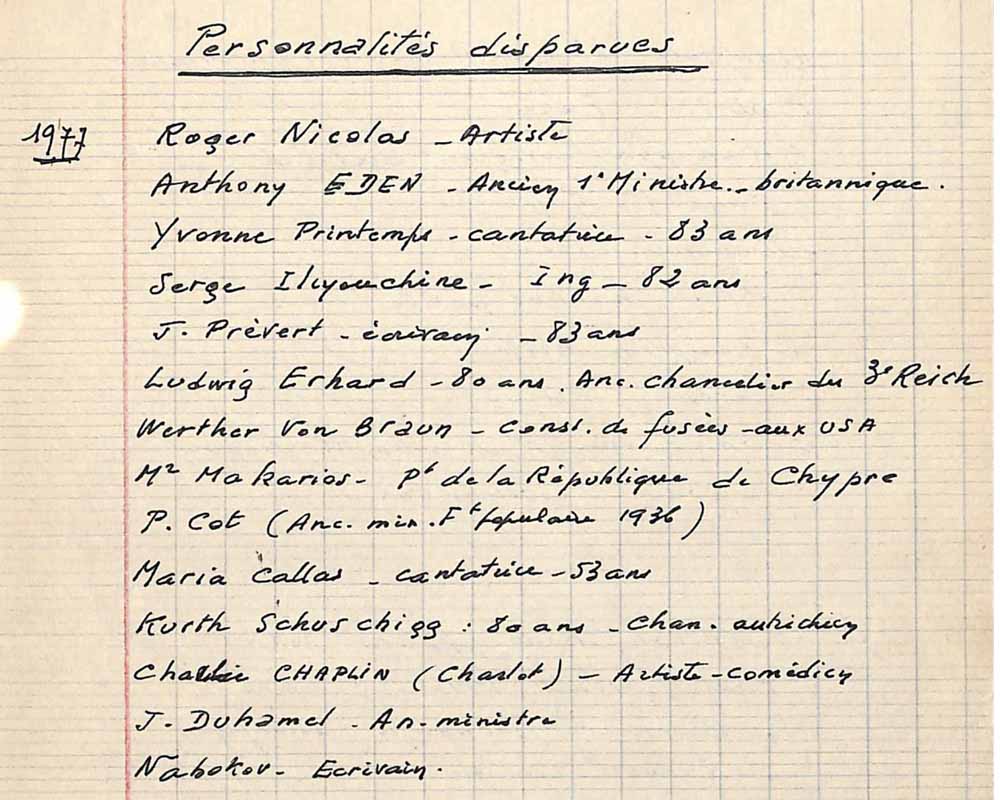 Personnalités disparues
1977 Roger Nicolas - Artiste
Anthony EDEN - Ancien 1e Ministre - britannique.
Yvonne Printemps - cantatrice - 83 ans
Serge Iliyouchine - Ing - 82 ans
J. Prévert - écrivain - 83 ans
Ludwig Erhard - 80 ans. Anc. chancelier du 3e Reich
Werther Von Braun - const. de fusées - aux USA
Mr Makarios - Pt de la République de Chypre
P. Cot (Anc. min. Ft populaire 1936)
Maria Callas - cantatrice - 53 ans
Kurth Schuschigg : 80 ans - Chan. autrichien
Charlie CHAPLIN (Charlot) - Artiste-comédien
J. Duhamel - An. ministre
Nabokov - Ecrivain.